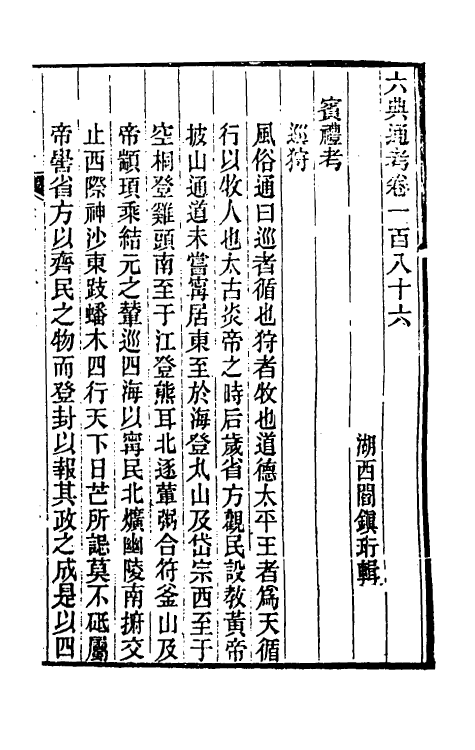 六典通考卷一百八十六
湖西閻鎮珩輯
賓禮考
巡狩
風俗通曰巡者循也狩者牧也道德太平王者為天循
行以牧人也太古炎帝之時后歲省方觀民設教黃帝
披山通道未嘗寧居東至於海登丸山及岱宗西至于
空桐登雞頭南至于江登熊耳北逐葷粥合符釜山及
帝顓頊乘結元之輦巡四海以寧民北爌幽陵南捬交
止西際神沙東跂蟠木四行天下日芒所諰莫不砥屬
帝嚳省方以齊民之物而登封以報其政之成是以四